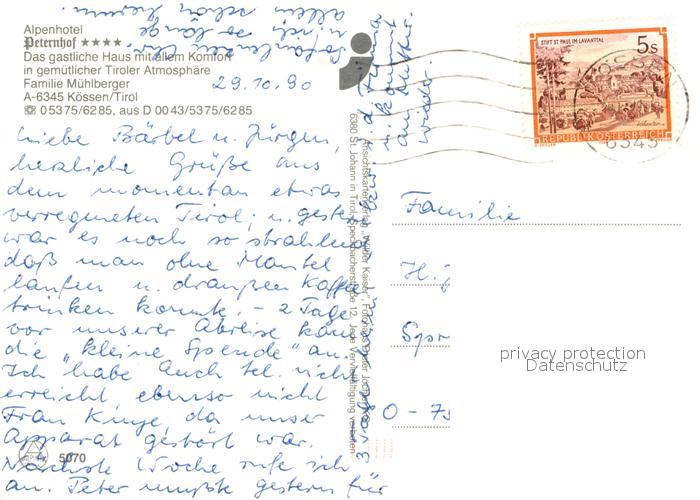 Alpenhotel
Peternhof ★★★★
Das gastliche Haus mit allem Komfort
in gemütlicher Tiroler Atmosphäre
Familie Mühlberger
A-6345 Kössen/Tirol
☎ 05375/6285, aus D 0043/5375/6285
29.10.90
Liebe Bärbel u. Jürgen,
herzliche Grüße aus
dem momentan etwas
verregneten Tirol; u. gestern
war es noch so strahlend
daß man ohne Mantel
laufen u. draußen Kaffee
trinken konnte. – 2 Tage
vor unserer Abreise kam
die „kleine Spende" an.
Ich habe Euch tel. nicht
erreicht ebenso nicht
Frau da unser
Apparat gestört war.
Nächste Woche rufe ich
an. Peter mußte gestern für
3
wieder.
allein schon
so lange
5070
Ansichtskartenverlag „Wilder Kaiser"
6380 St. Johann in Tirol, Speckbacherstraße 12, Jede Vervielfältigung verboten
STIFT ST. PAUL IM LAVANTTAL
5 S
REPUBLIK ÖSTERREICH
6345
Familie
H. J
Spr
O - 75
privacy protection
Datenschutz